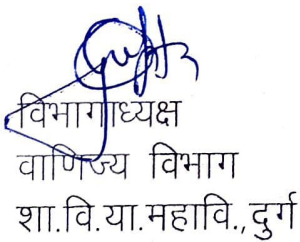 विभागाध्यक्ष
वाणिज्य विभाग
शा.वि.या.महावि.,दुर्ग